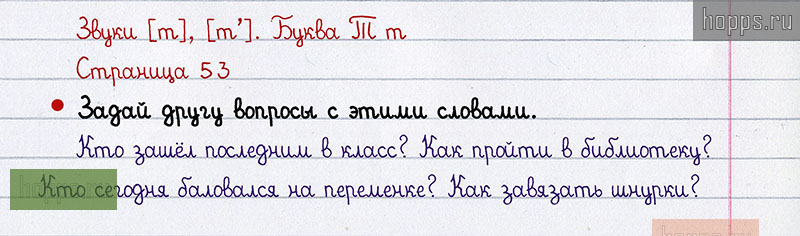 hopps.ru
Звуки [т], [т’]. Буква Т т
Страница 53
Задай другу вопросы с этими словами.
Кто зашёл последним в класс? Как пройти в библиотеку?
Кто сегодня баловался на переменке? Как завязать шнурки?